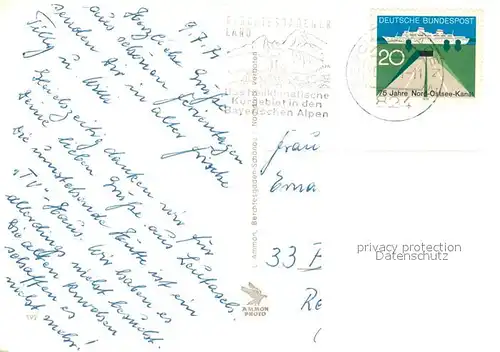 9.7.71
Herzliche Grüße
aus schönen Ferientagen
senden Dir in alter Frische
Tilly u. Willi
Gleichzeitig danken wir für
Deine lieben Grüße aus
Die umstehende Hütte ist ein
"TV"-Haus. Wir haben es
allerdings nicht
Die alten Knochen
schaffen es
nicht mehr!
BERCHTESGADENER
LAND
Das heilklimatische
Kurgebiet in den
Bayerischen Alpen
DEUTSCHE BUNDESPOST
20
75 Jahre Nord-Ostsee-Kanal
824
L. Ammon, Berchtesgaden-Schönau
AMMON
PHOTO
Frau
33
privacy protection
Datenschutz